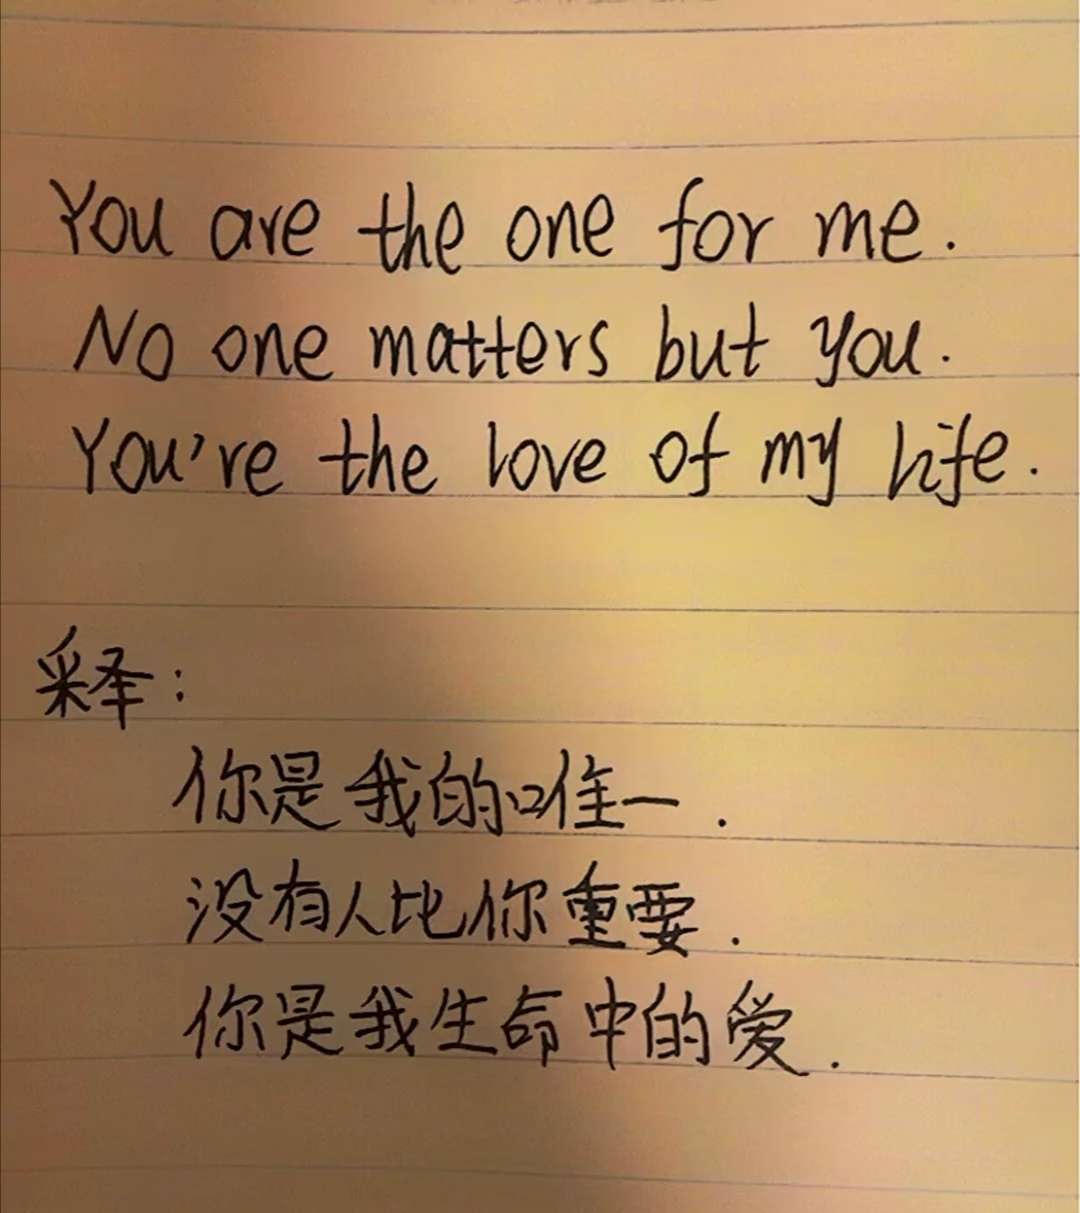 You are the one for me.
No one matters but you.
You're the love of my life.
采泽:
你是我的唯一.
没有人比你重要.
你是我生命中的爱.